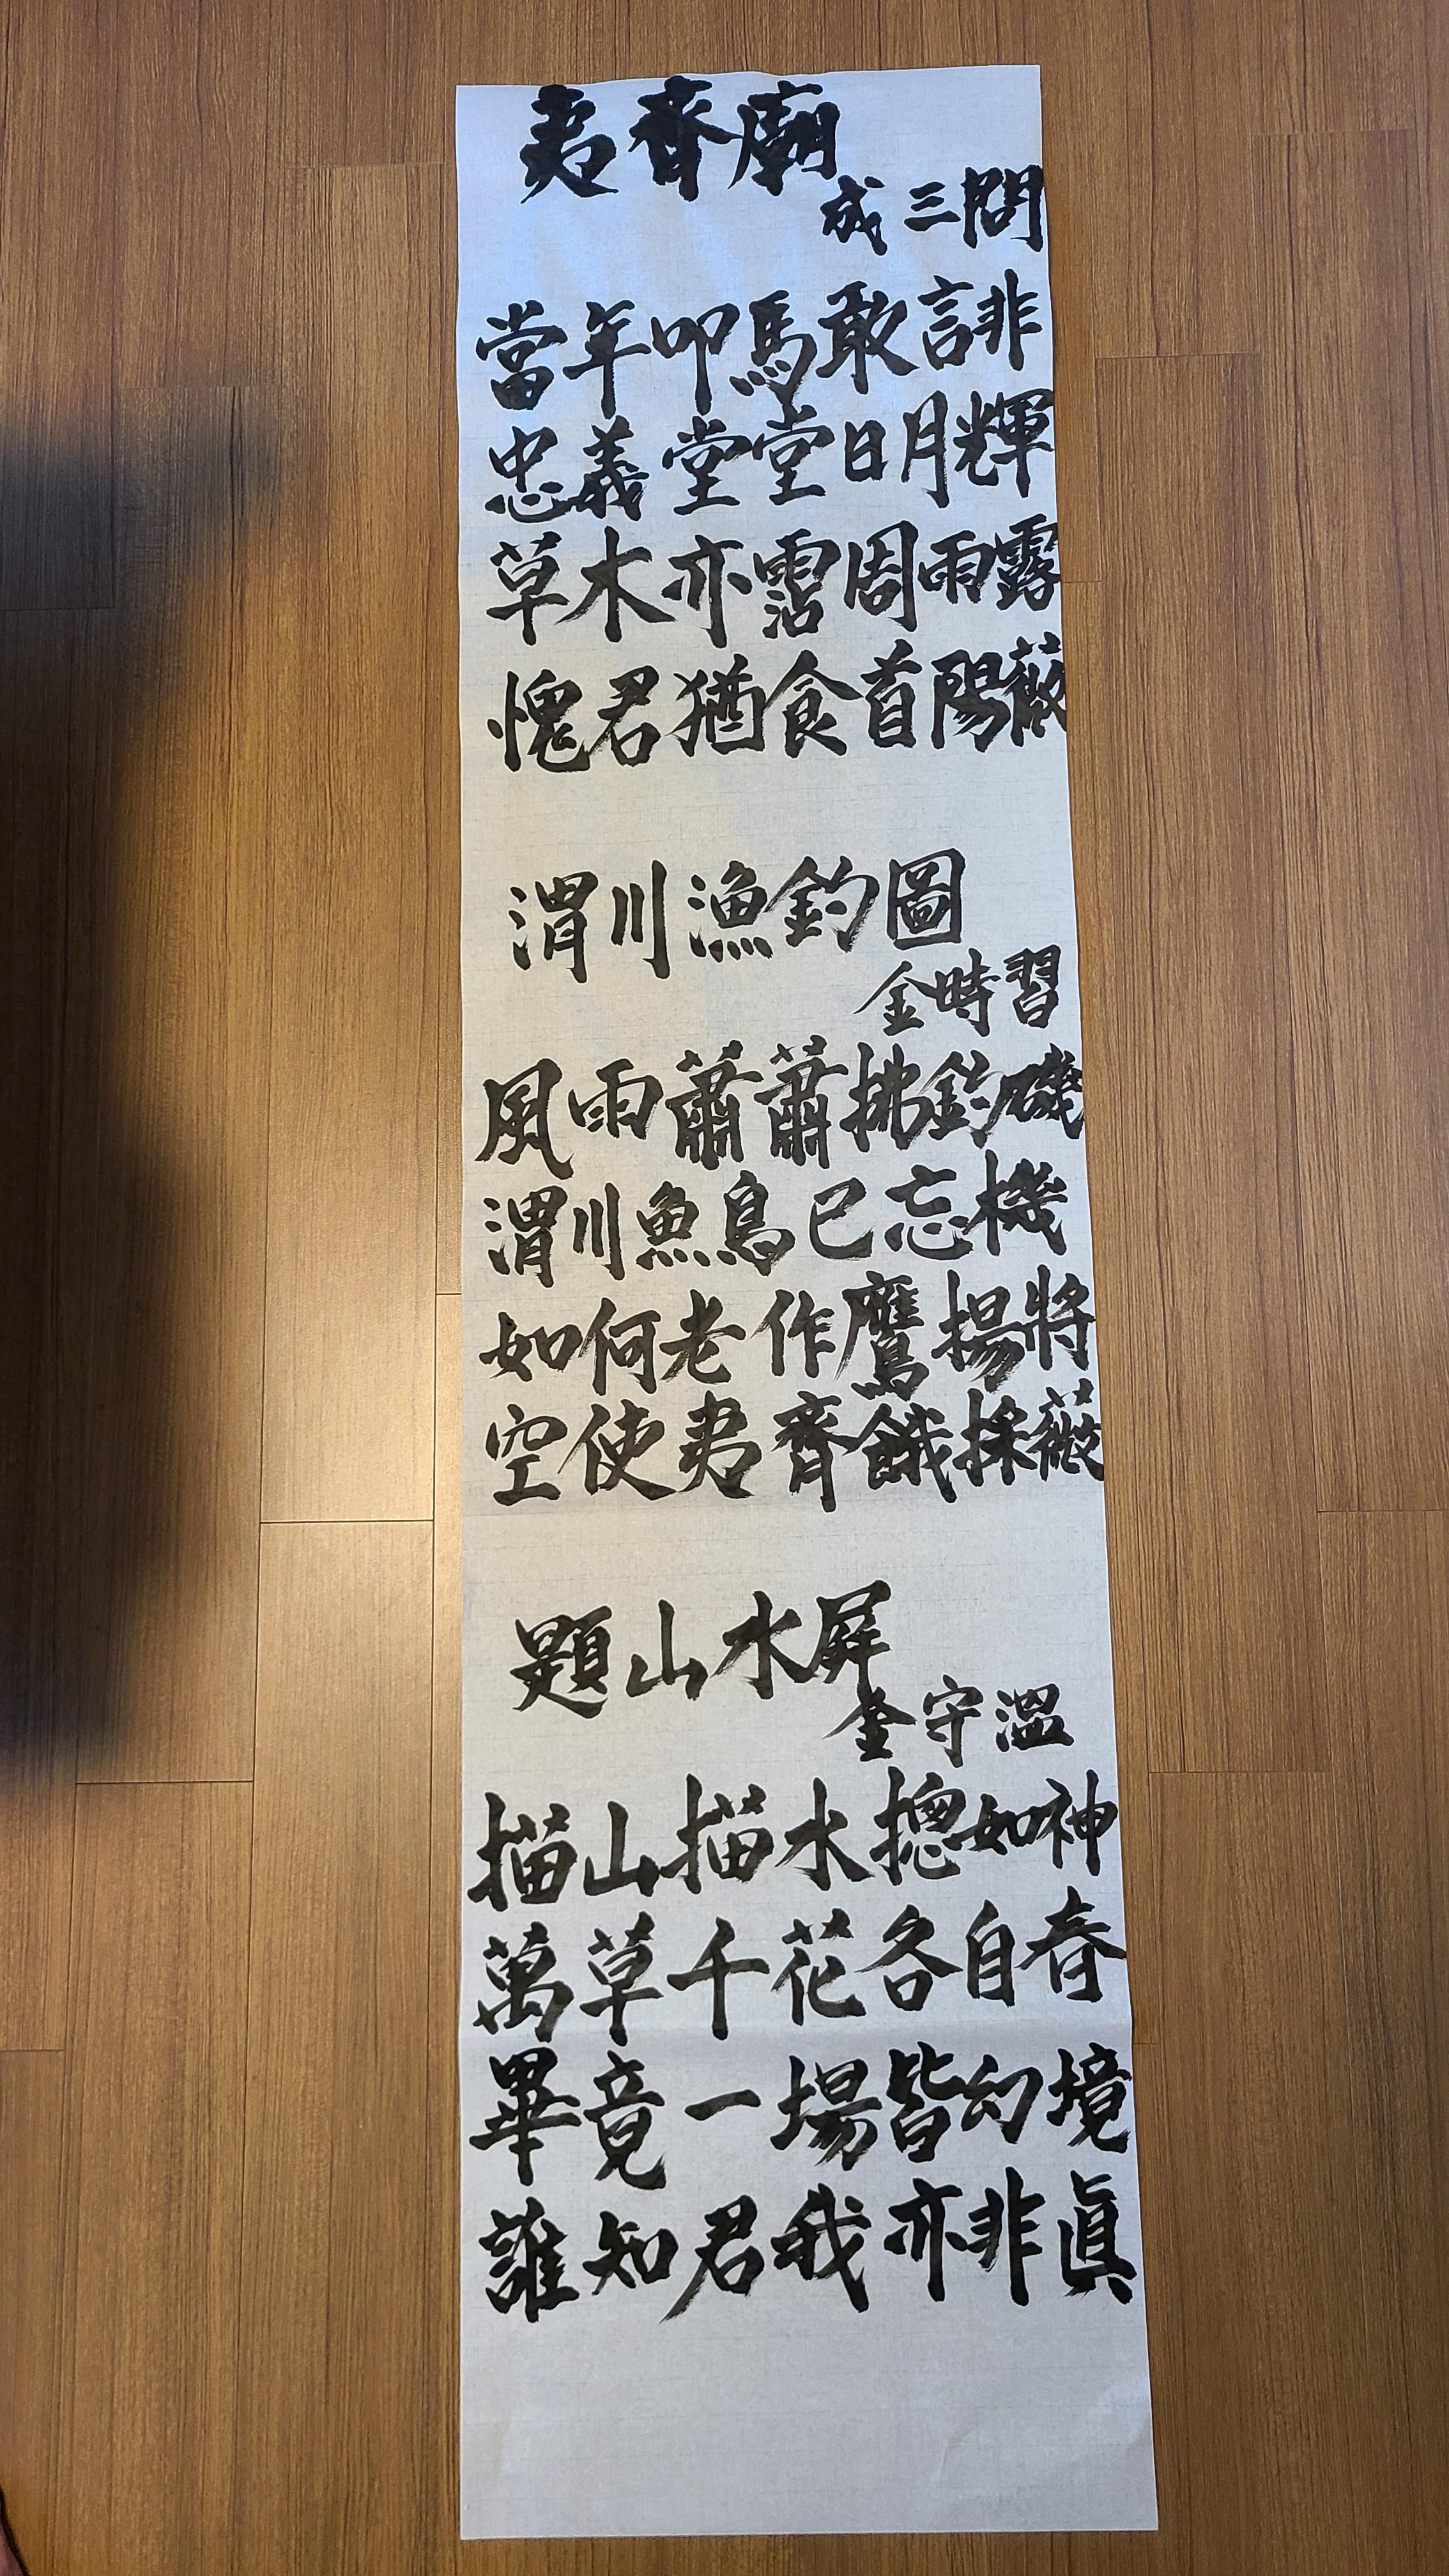 夷齊廟
成三問
當年叩馬敢言非
忠義堂堂日月輝
草木亦霑周雨露
愧君猶食首陽薇
渭川漁釣圖
金時習
風雨蕭蕭拂釣磯
渭川魚鳥已忘機
如何老作鷹揚將
空使夷齊餓採薇
題山水屛
金守溫
描山描水摠如神
萬草千花各自春
畢竟一場皆幻境
誰知君我亦非眞